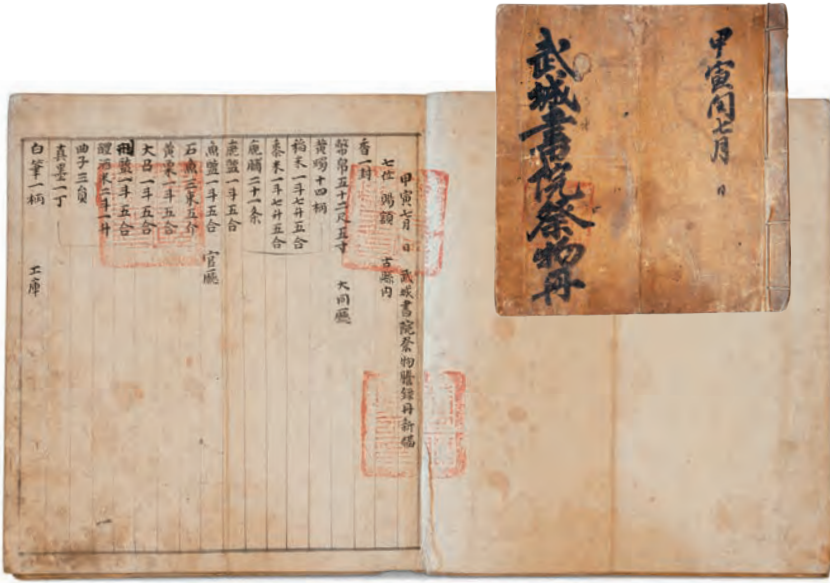 甲寅閏七月 日
武城書院祭物冊
甲寅七月 日 武城書院祭物謄錄冊新編
七位 賜額 古縣內
香一封
幣帛五十二尺五寸 大同廳
黃燭十四柄
稻米一斗七升五合
黍米一斗七升五合
鹿脯二十一条
鹿醢一斗五合
魚醢一斗五合 官廳
石魚三束五介
黃栗一斗五合
大呂一斗五合
刑鹽一斗五合
醴酒米二斗一升
曲子三員
真墨一丁
白筆一柄 工庫